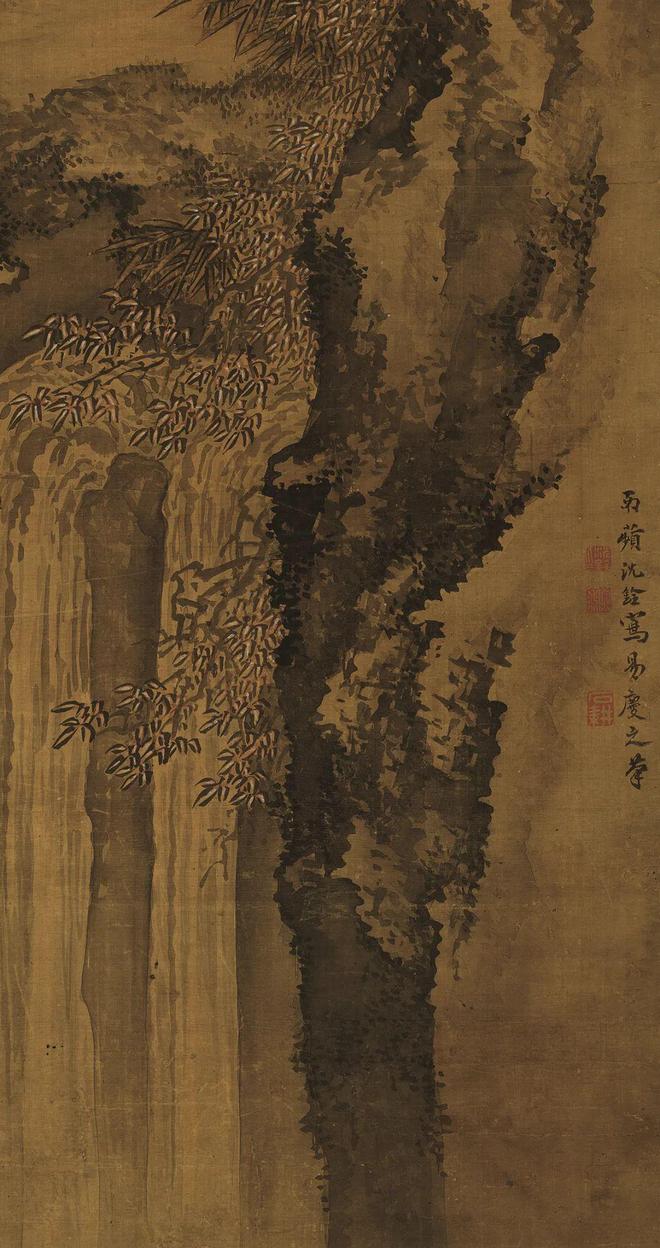 南蘋沈銓寫易慶之筆